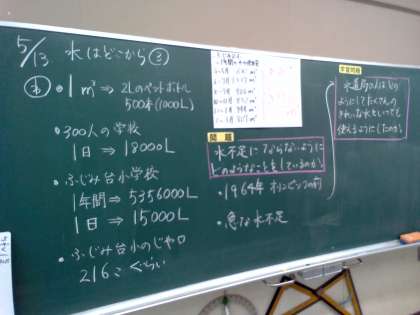 5/13 水はどこから③
め
・1m³ ⇒ 2Lのペットボトル
500本(1000L)
・300人の学校
1日 ⇒ 18000L
・ふじみ台小学校
1年間 ⇒ 5356000L
1日 ⇒ 15000L
・ふじみ台小のじゃ口
216こぐらい
問題
水不足にならないように
どのようなことをしているのか。
・1964年 オリンピックの前
・急な水不足
学習問題
水道局の人はどの
ようにしてたくさんの
きれいな水をいつでも
使えるようにしたのか